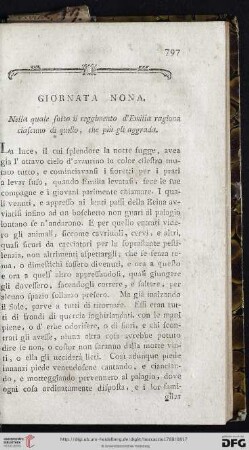 797
GIORNATA NONA,
Nella quale sotto il reggimento d'Emilia ragiona
ciascuno di quello, che più gli aggrada.
La luce, il cui splendore la notte fugge, avea
già l'ottavo cielo d'azzurrino in color cilestro mu-
tato tutto, e cominciavansi i fioretti per i prati
a levar suso, quando Emilia levatasi, fece le sue
compagne e i giovani parimente chiamare. I qua-
li venuti, e appresso ai lenti passi della Reina av-
viatisi infino ad un boschetto non guari al palagio
lontano se n'andarono. E per quello entrati vide-
ro gli animali, siccome cavriuoli, cervj, e altri,
quasi sicuri da cacciatori per la soprastante pesti-
lenzia, non altrimenti aspettargli; che se senza te-
ma, o dimestichi fussero divenuti, e ora a questo
e ora a quell'altro appressandosi, quasi giungere
gli dovessero, facendogli correre, e saltare, per
alcuno spazio sollazzo presero. Ma già inalzando
il Sole, parve a tutti di ritornare. Essi eran tut-
ti di frondi di quercia inghirlandati, con le mani
piene, o d'erbe odorifere, o di fiori, e chi scon-
trati gli avesse, niuna altra cosa avrebbe potuto
dire se non, o costor non saranno dalla morte vin-
ti, o ella gli ucciderà lieti. Così adunque piede
innanzi piede venendosene cantando, e cianciàn-
do, e motteggiando pervennero al palagio, dove
ogni cosa ordinatamente disposta, e i lor fami-
gliar
http://digi.ub.uni-heidelberg.de/diglit/
DFG